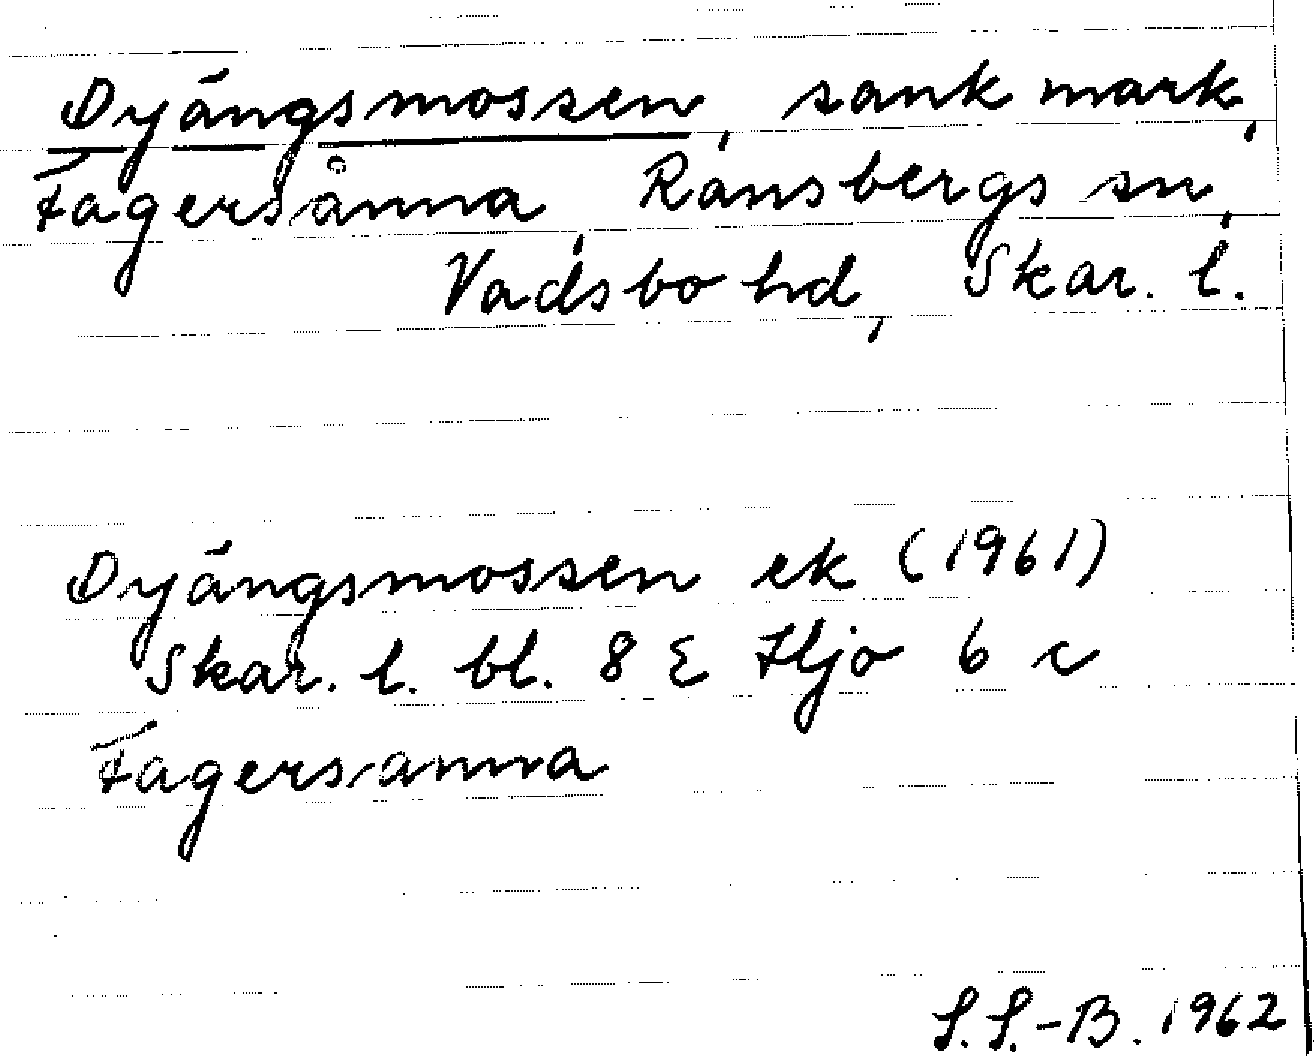 Dyängsmossen, sank mark,
Fagersånna, Ransbergs sn,
Vadsbo hd, Skar. l.
Dyängsmossen ek (1961)
Skar. l. bl. 8 E Hjo 6 c
Fagersanna
S.S.-B. 1962